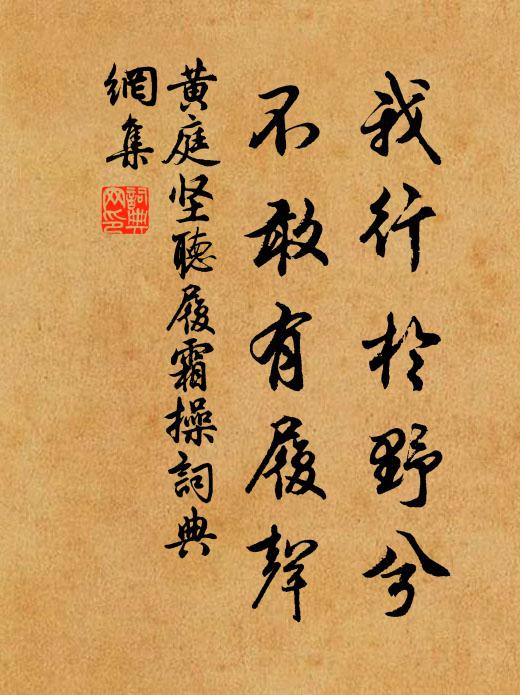 我行於野兮
不敢有履聲
黃庭坚聽履霜操詞典
網集
詞典
网印